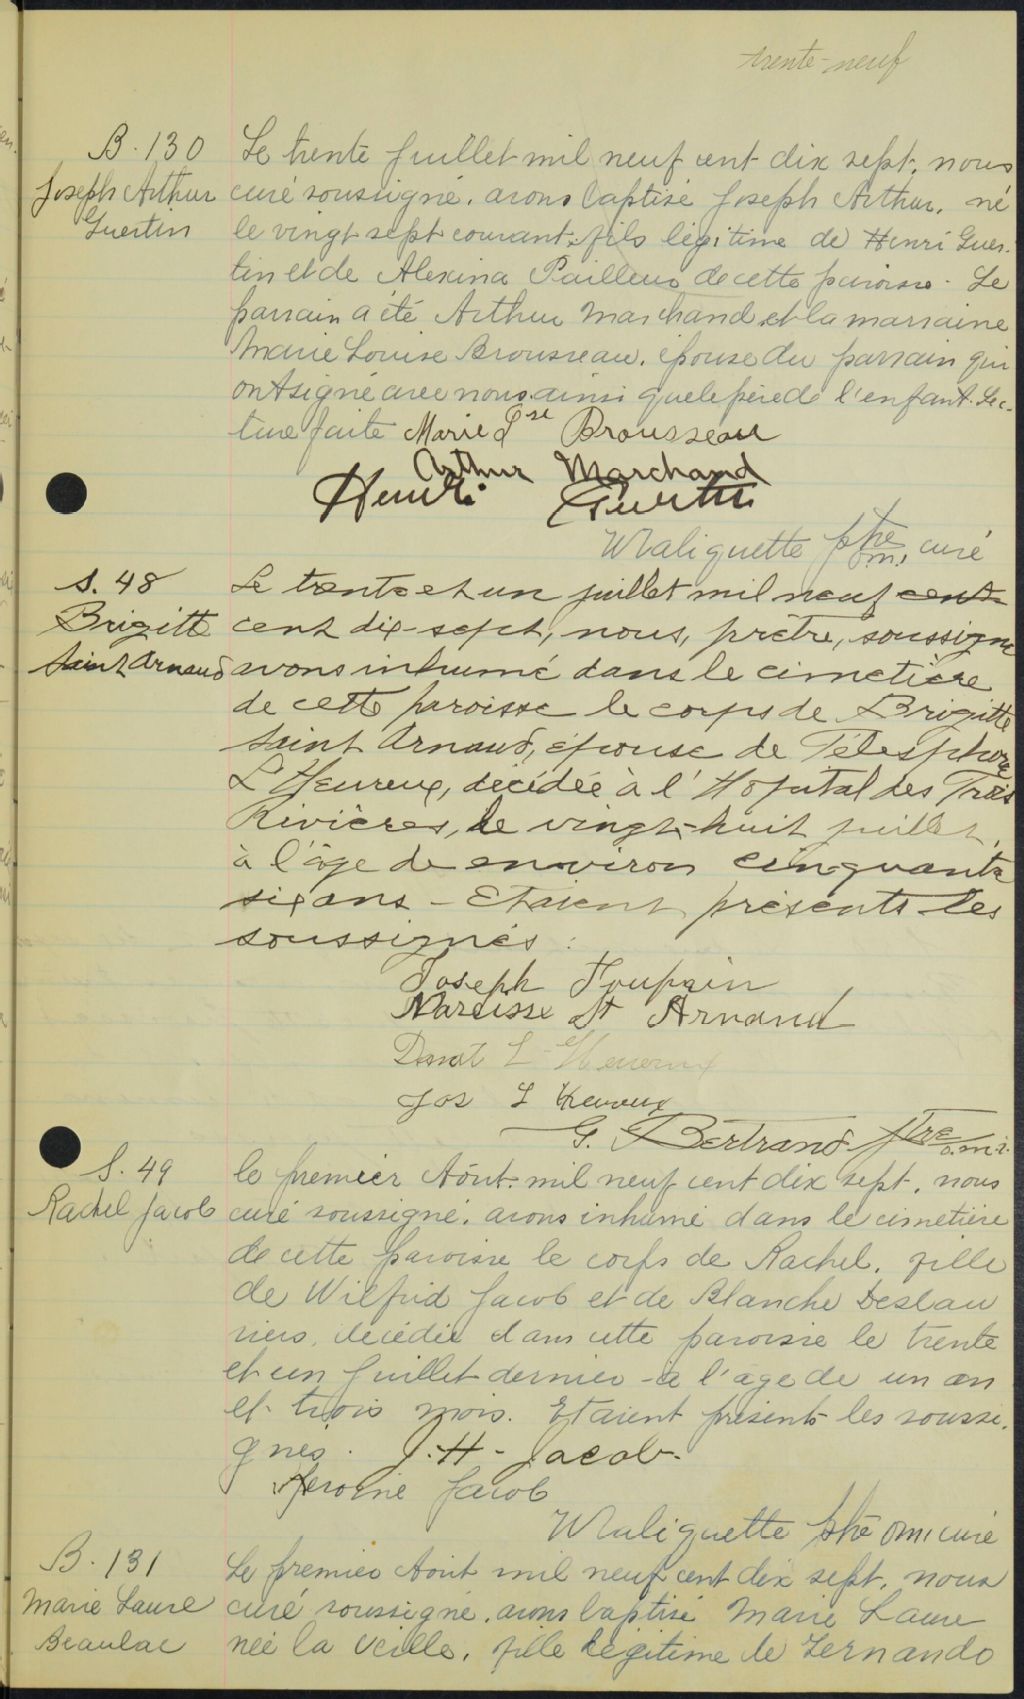 trente-neuf
B. 130
Joseph Arthur
Guertin
Le trente Juillet mil neuf cent dix sept, nous
curé soussigné, avons baptisé Joseph Arthur, né
le vingt sept courant, fils légitime de Henri Guer-
tin et de Alexina Pailleur de cette paroisse. Le
parrain a été Arthur Marchand et la marraine
Marie Louise Brousseau, épouse du parrain qui
ont signé avec nous ainsi que le père de l'enfant. Lec-
ture faite Marie Lse Brousseau
Arthur Marchand
Henri Guertin
Waliquette ptre o.m.i. curé
S. 48
Brigitte
Saint Arnaud
Le trente et un juillet mil neuf cent
cent dix-sept, nous, prêtre, soussigné
avons inhumé dans le cimetière
de cette paroisse le corps de Brigitte
Saint Arnaud, épouse de Télesphore
L'Heureux, décédée à l'Hopital des Trois
Rivières, le vingt-huit juillet,
à l'âge de environ cinquante
six ans - Etaient présents les
soussignés :
Joseph Houpain
Narcisse St Arnaud
Donat L-Heureux
Jos L Heureux
G. Bertrand ptre o.m.i.
S. 49
Rachel Jacob
le premier Aôut mil neuf cent dix sept, nous
curé soussigné, avons inhumé dans le cimetière
de cette paroisse le corps de Rachel, fille
de Wilfrid Jacob et de Blanche Deslau
riers, décédée dans cette paroisse le trente
et un Juillet dernier à l'âge de un an
et trois mois. Etaient présents les soussi-
gnés. J.-H-Jacob-
Jerome Jacob
Waliquette ptre omi curé
B. 131
Marie Laure
Beaulac
Le premier Aout mil neuf cent dix sept, nous
curé soussigné, avons baptisé Marie Laure
née la veille, fille légitime de Fernando